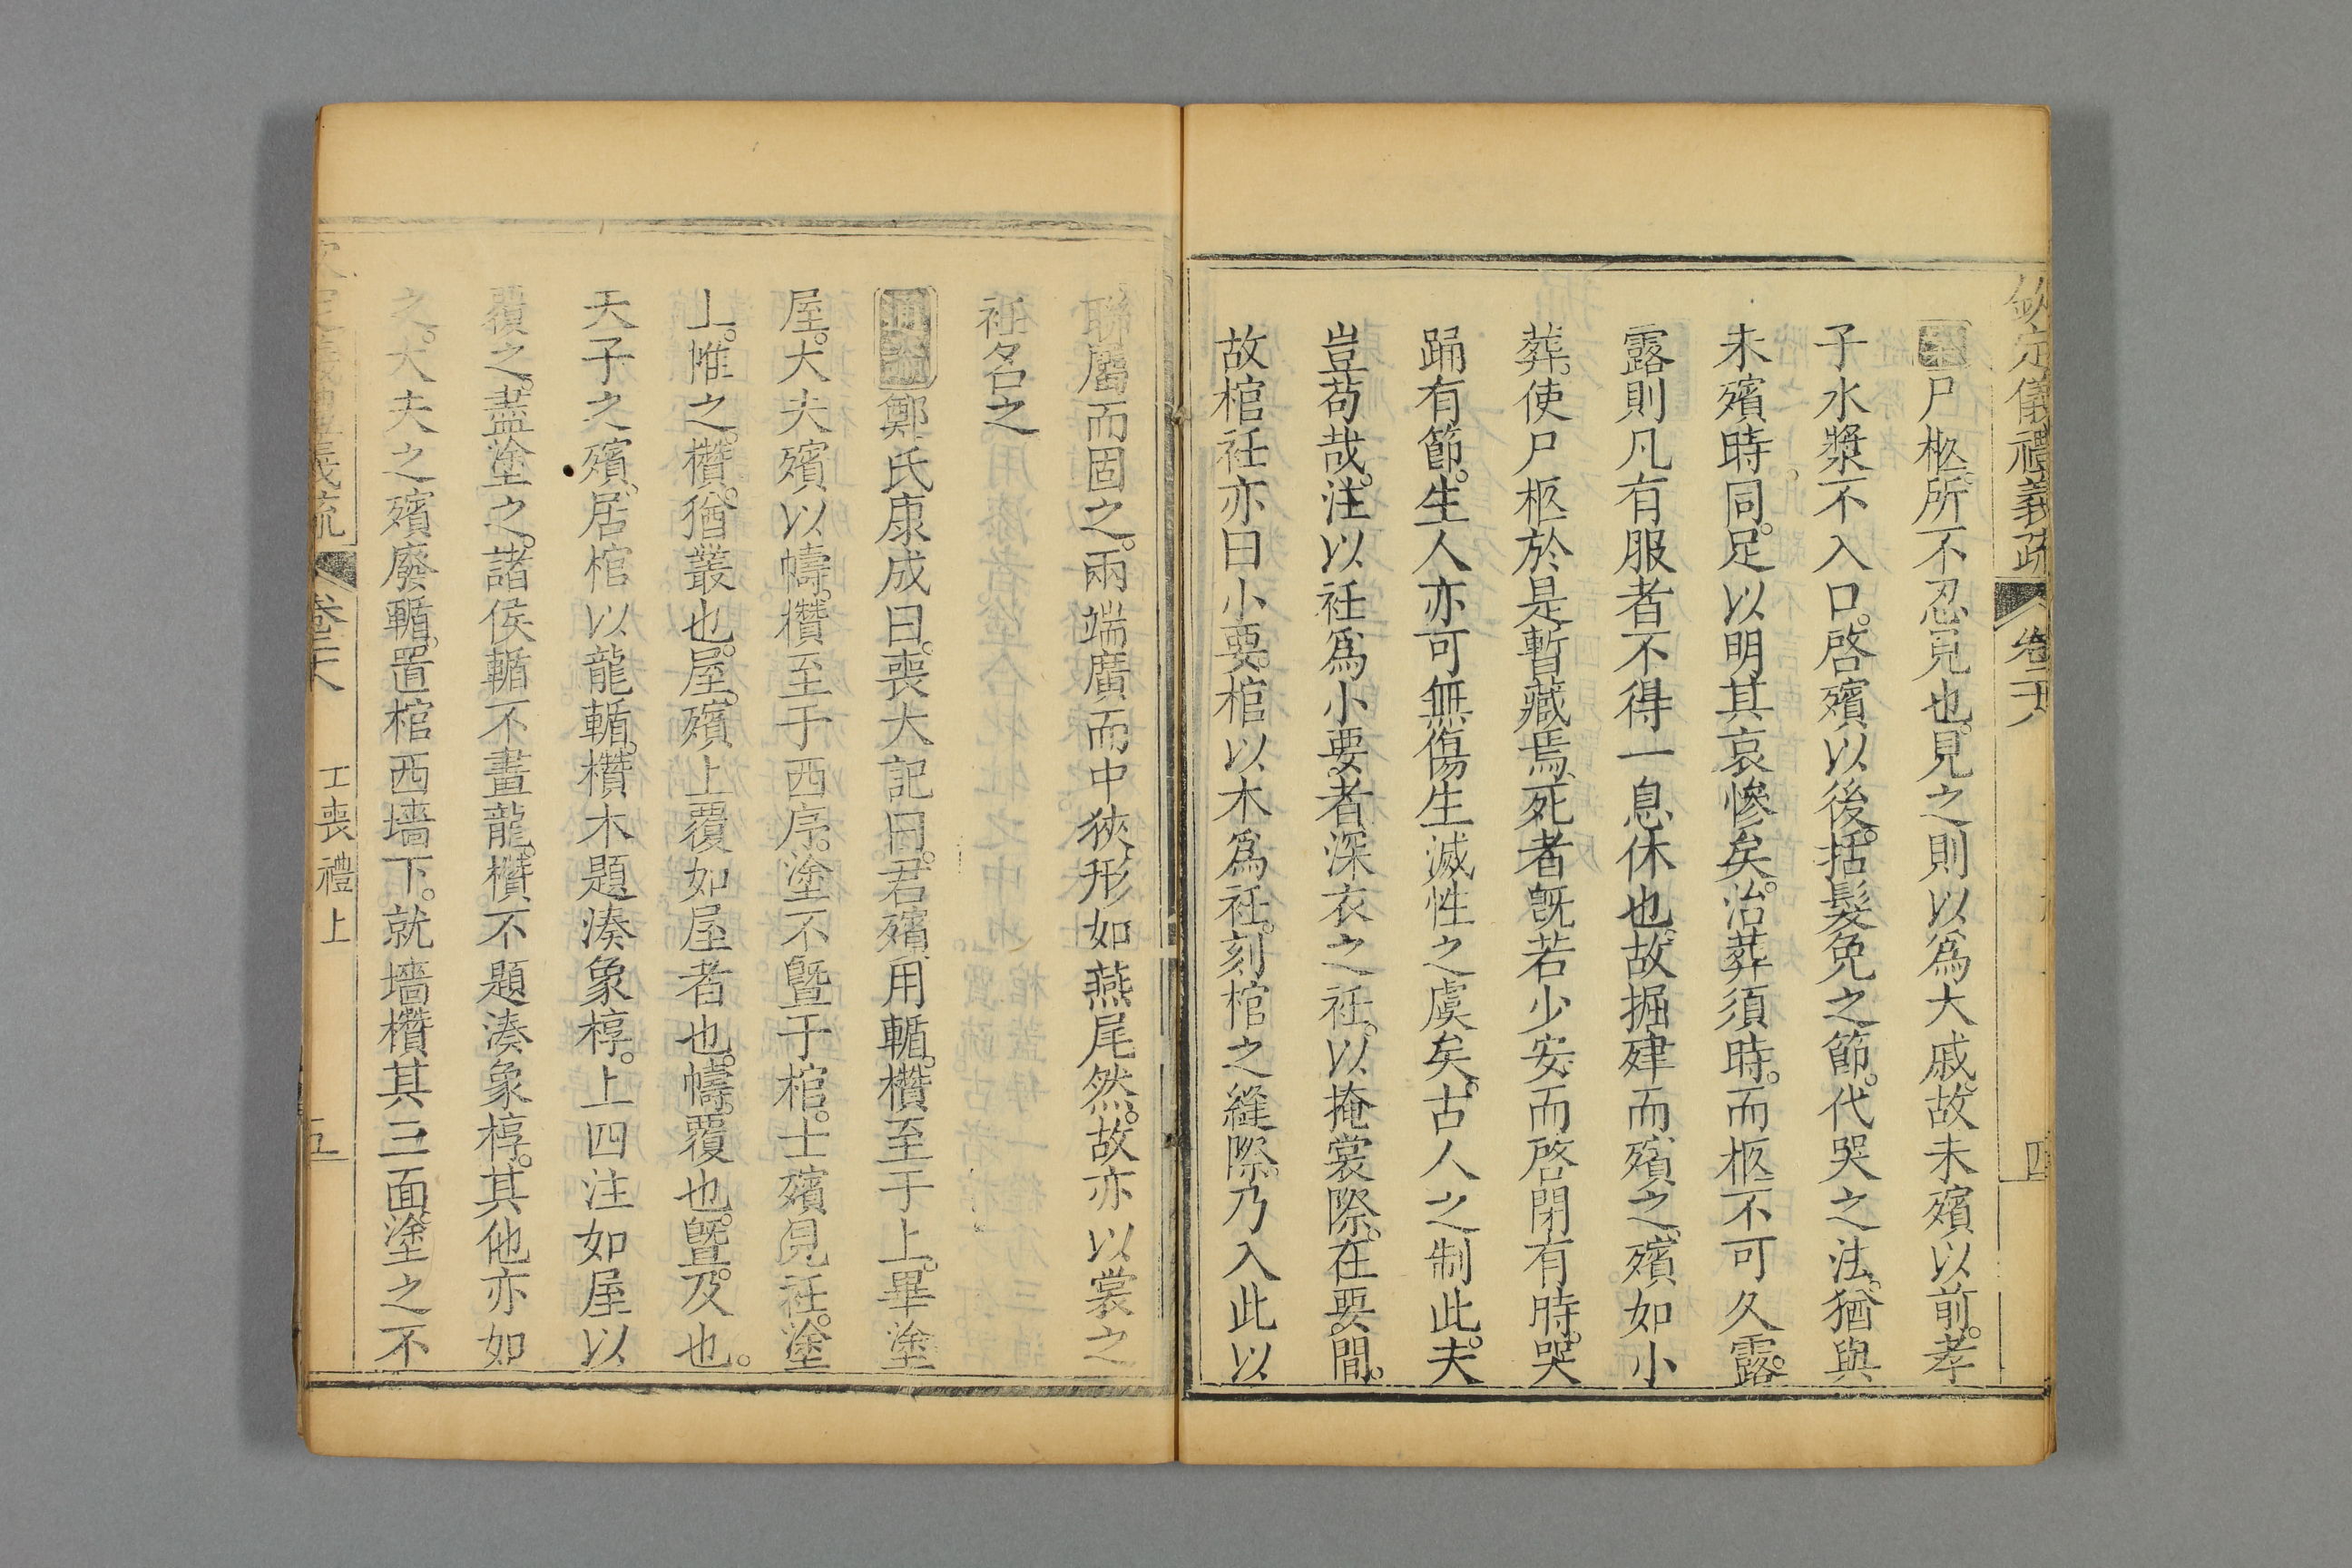 欽定儀禮義疏 卷二十八 四
案尸柩。所不忍見也。見之則以爲大戚。故未殯以前。孝
子水漿不入口。啓殯以後。括髮免之節。代哭之法。猶與
未殯時同。足以明其哀慘矣。治葬須時。而柩不可久露。
露則凡有服者不得一息休也。故掘肂而殯之。殯如小
葬。使尸柩於是暫藏焉。死者旣若少安。而啓閉有時。哭
踊有節。生人亦可無傷生滅性之虞矣。古人之制此。夫
豈苟哉。注以衽爲小要者。深衣之衽。以掩裳際。在要間。
故棺衽亦曰小要。棺以木爲衽。刻棺之縫際。乃入此以
聯屬而固之。兩端廣而中狹。形如燕尾然。故亦以裳之
衽名之
通論鄭氏康成曰。喪大記曰。君殯用輴。欑至于上。畢塗
屋。大夫殯以幬。欑至于西序。塗不曁于棺。士殯見衽。塗
上。惟之。欑。猶叢也。屋。殯上覆如屋者也。幬。覆也。曁。及也。
天子之殯。居棺以龍輴。欑木題湊象椁。上四注如屋以
覆之。盡塗之。諸侯輴不畫龍。欑不題湊象椁。其他亦如
之。大夫之殯廢輴。置棺西墻下。就墻欑其三面。塗之不
義疏 卷二十八 士喪禮上 五